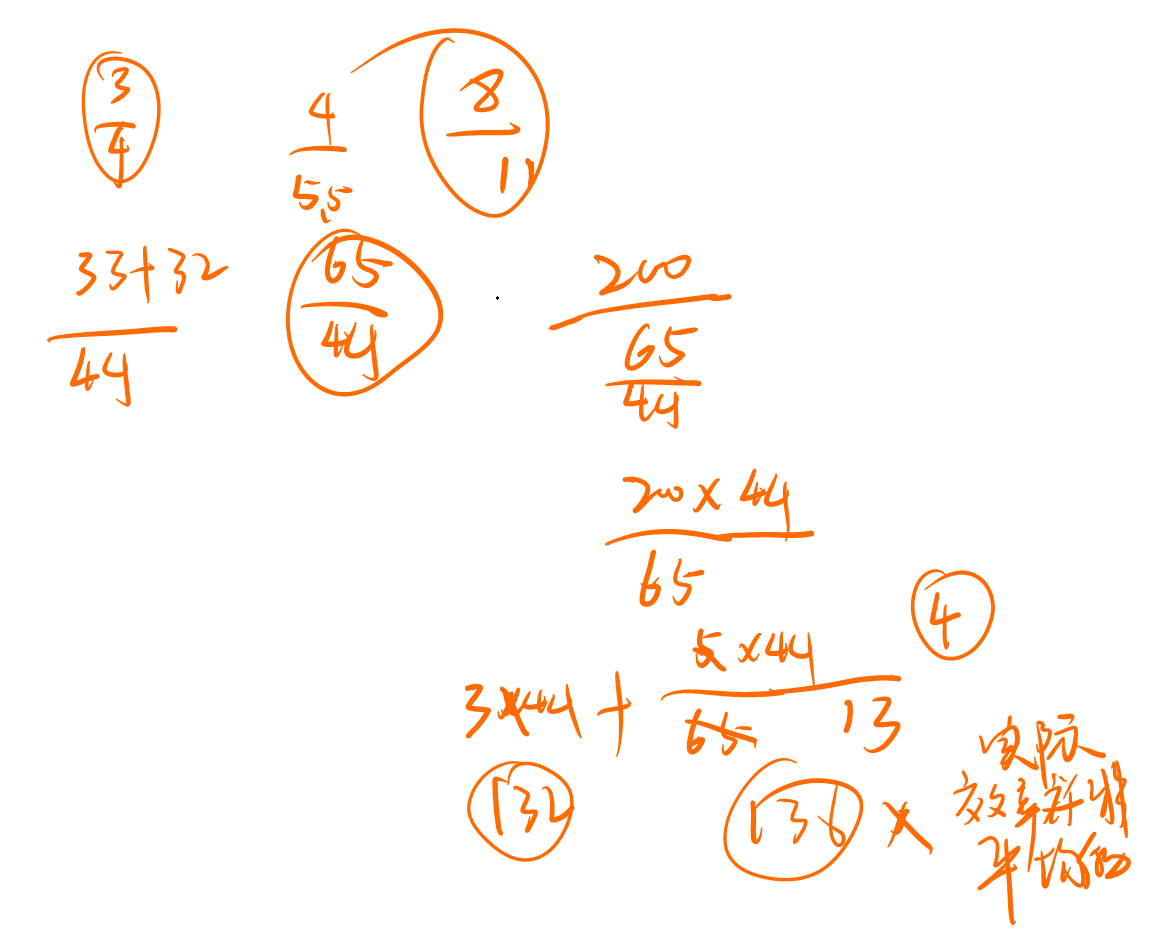 3/4
4/5.5
8/11
33+32/44
65/44
200/(65/44)
200×44/65
4
3×44+5×44/65 13
132
136 ×
实际
效率并非
平均的